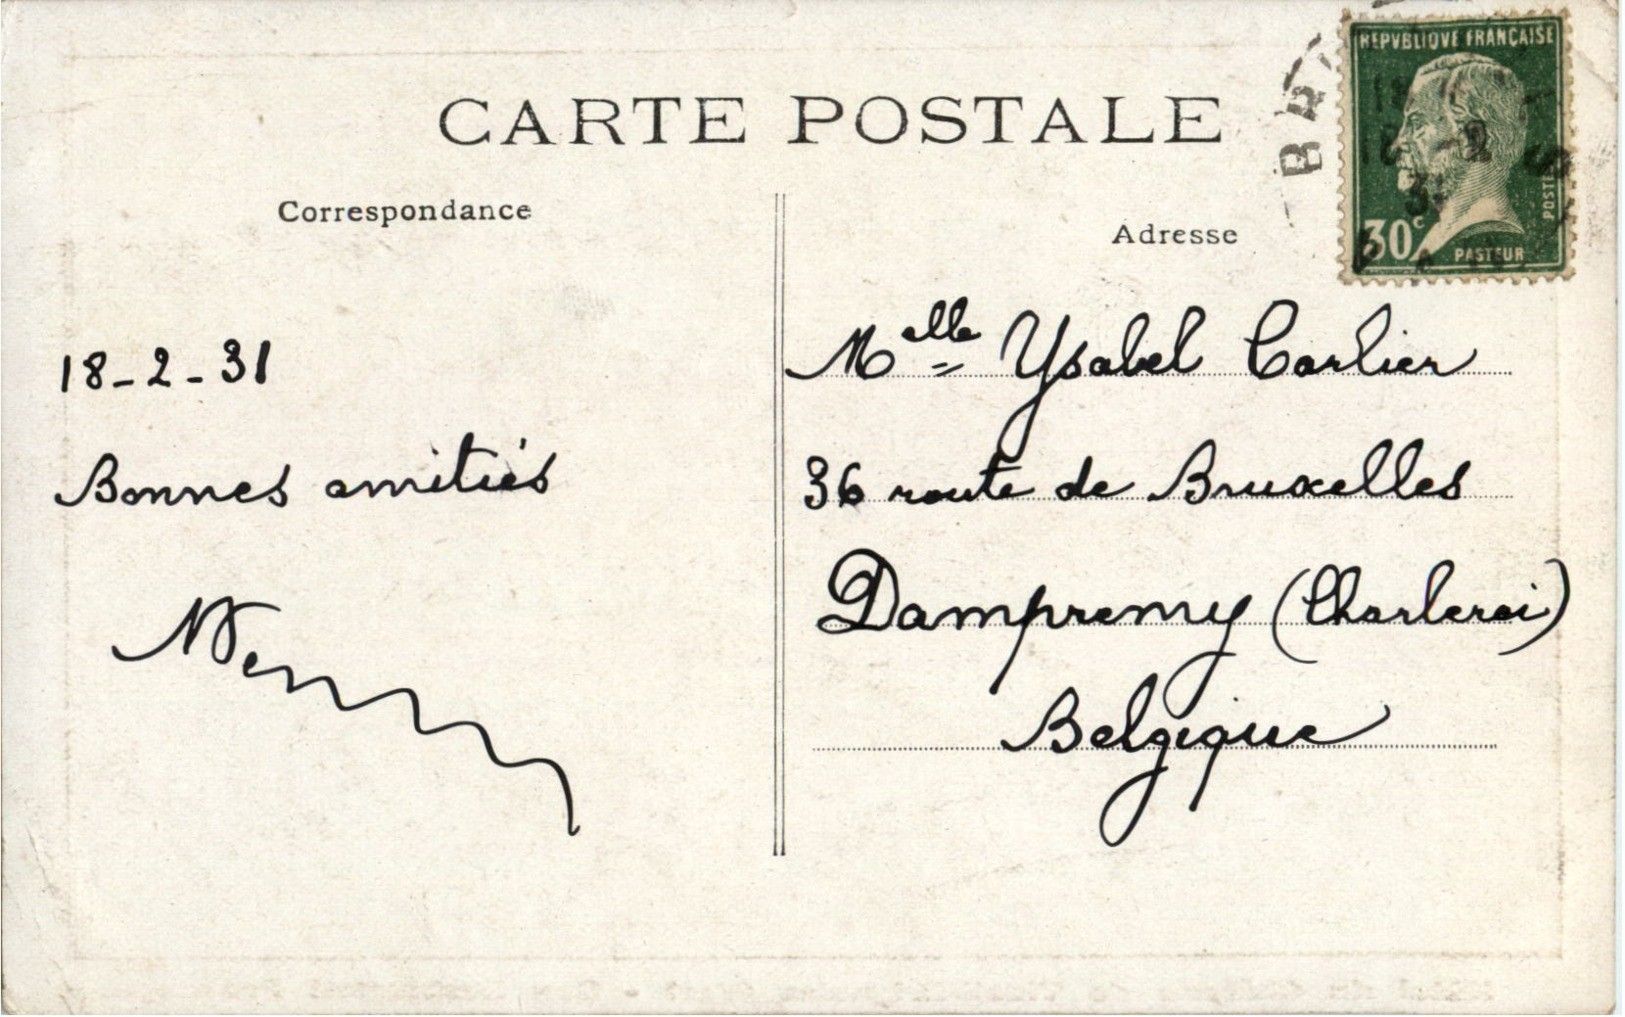 CARTE POSTALE
Correspondance
18-2-31
Bonnes amitiés
Adresse
REPVBLIQVE FRANÇAISE
POSTES
30c
PASTEUR
18
-2
31
Melle Ysabel Carlier
36 route de Bruxelles
Dampremy (Charleroi)
Belgique